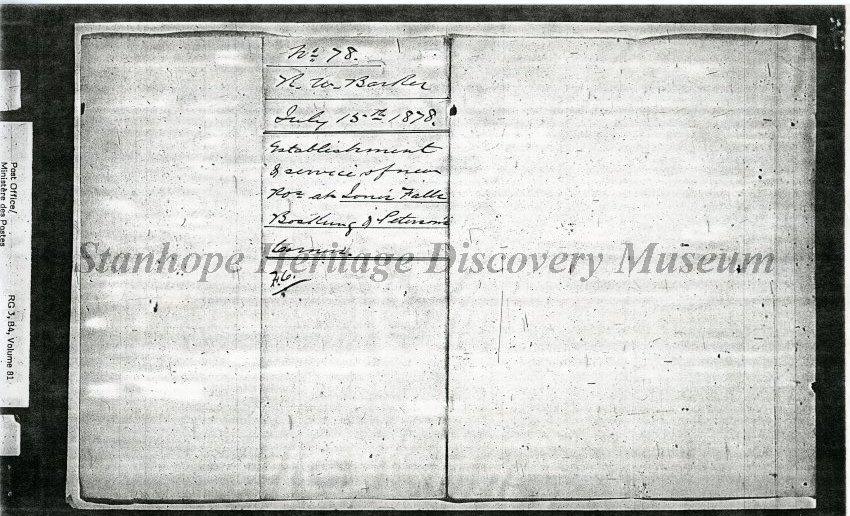 No 78.
R. W. Barker
July 15th 1878.
Establishment
& service of new
POs at Falls
& Peterson's
Corners.
Stanhope Heritage Discovery Museum
Post Office/
Ministère des Postes
RG 3, B4, Volume 81